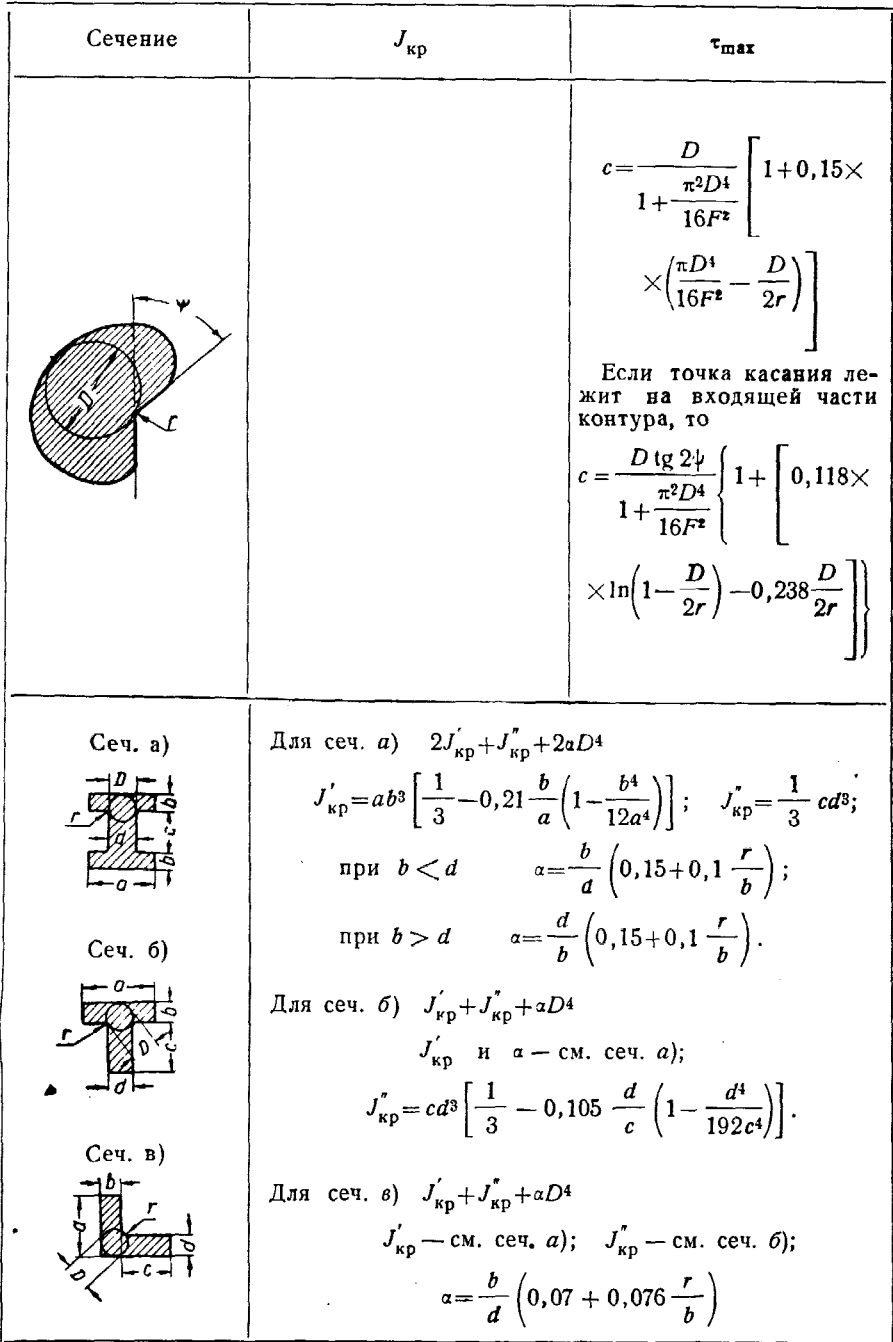 Сечение J_кр τ_max
c = D / (1 + π²D⁴/16F²) [1+0,15×
×(πD⁴/16F² − D/2r)]
Если точка касания ле-
жит на входящей части
контура, то
c = D tg 2ψ / (1 + π²D⁴/16F²) {1 + [0,118×
×ln(1 − D/2r) −0,238 D/2r]}
ψ
D
r
Сеч. а)
D
r
b
d
c
b
a
Для сеч. а) 2J′_кр + J″_кр + 2αD⁴
J′_кр = ab³ [1/3 − 0,21 b/a (1 − b⁴/12a⁴)]; J″_кр = 1/3 cd³;
при b < d α = b/d (0,15+0,1 r/b);
при b > d α = d/b (0,15+0,1 r/b).
Сеч. б)
a
b
r
D
c
d
Для сеч. б) J′_кр + J″_кр + αD⁴
J′_кр и α — см. сеч. а);
J″_кр = cd³ [1/3 − 0,105 d/c (1 − d⁴/192c⁴)].
Сеч. в)
b
r
a
d
D
c
Для сеч. в) J′_кр + J″_кр + αD⁴
J′_кр — см. сеч. а); J″_кр — см. сеч. б);
α = b/d (0,07 + 0,076 r/b)